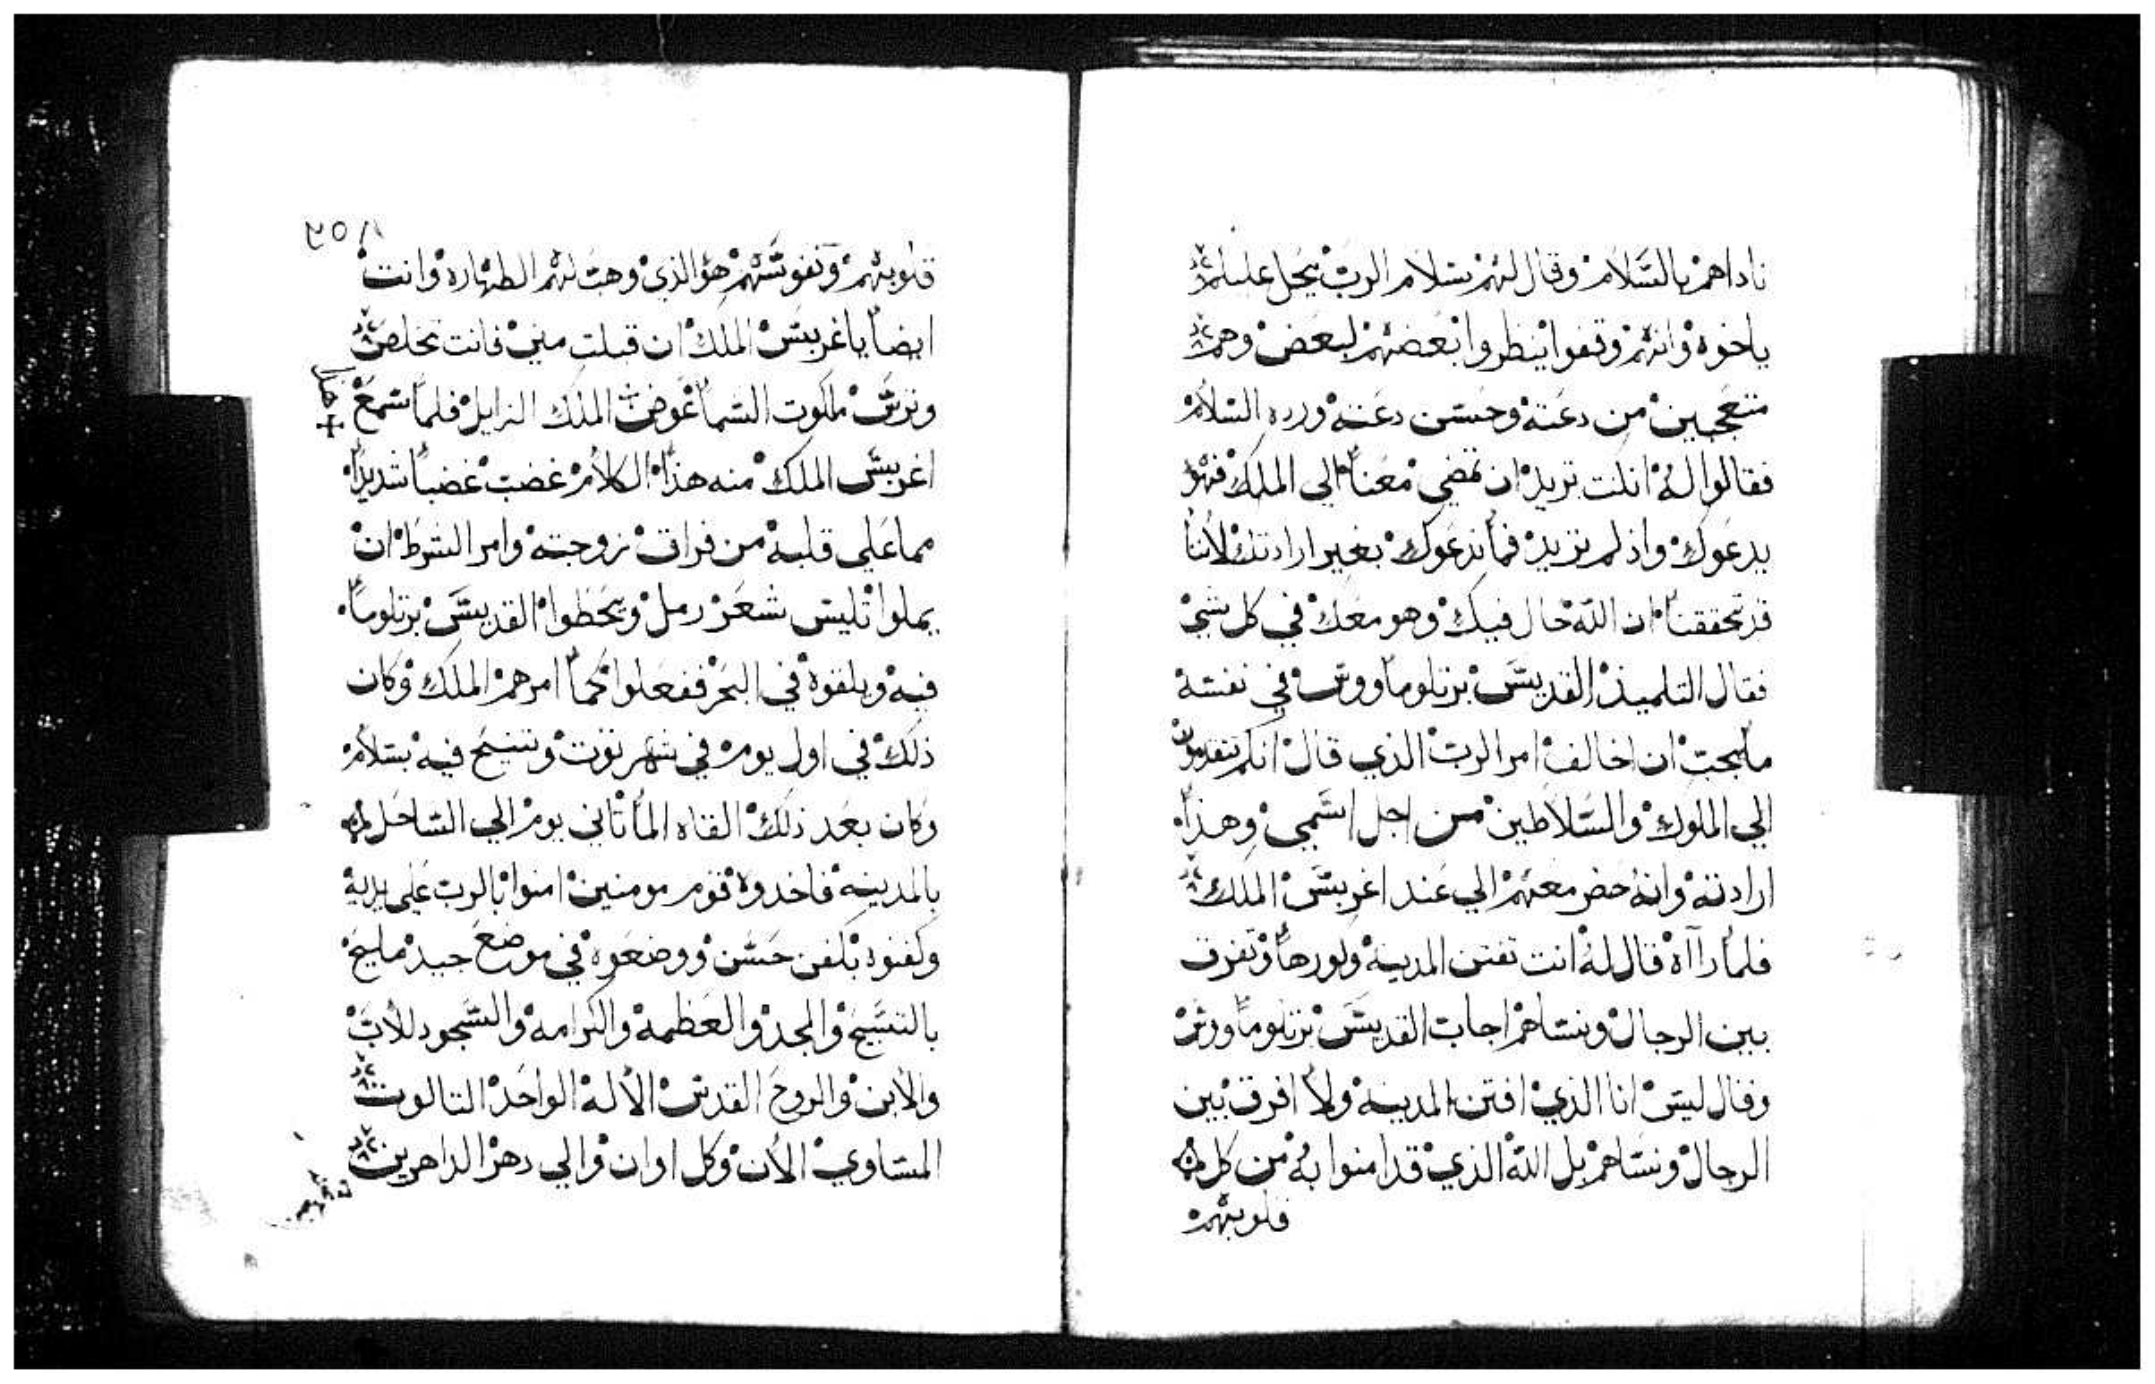 ناداهم بالسلام وقال لهم سلام الرب يحل عليكم
ياخوه وانهم وقفوا ينظروا بعضهم لبعض وهم
متعجبين من دعته وحسن دعته ورده السلام
فقالوا له انكنت تريد ان تمضي معنا الي الملك فهو
يدعوك واذ لم تريد فما ندعوك بغير ارادتك لاننا
قد تحققنا ان الله حال فيك وهو معك في كل شي
فقال التلميذ القديس برتلوماوس في نفسه
ما يجب ان اخالف امر الرب الذي قال انكم تتقدمون
الي الملوك والسلاطين من اجل اسمي وهذا
ارادته وانه حضر معهم الي عند اغربيس الملك
فلما رااه قال له انت تفتن المدينة وكورها وتفرق
بين الرجال ونساهم اجاب القديس برتلوماوس
وقال ليس انا الذي افتن المدينة ولا افرق بين
الرجال ونساهم بل الله الذي قد امنوا به من كل
قلوبهم
٢٥٨
قلوبهم ونفوسهم هو الذي وهب لهم الطهاره وانت
ايضا ياغربيس الملك ان قبلت مني فانت تخلص
وترث ملكوت السما عوض الملك الزايل فلما سمع
اغربيس الملك منه هذا الكلام غضب غضبا شديدا
مما علي قلبه من فراق زوجته وامر الشرط ان
يملوا تليس شعر رمل ويحطوا القديس برتلوما
فيه ويلقوه في البحر ففعلوا كما امرهم الملك وكان
ذلك في اول يوم في شهر توت وتنيح فيه بسلام
وكان بعد ذلك القاه الما تاني يوم الي الساحل
بالمدينه فاخدوه قوم مومنين امنوا بالرب علي يديه
وكفنوه بكفن حسن ووضعوه في موضع جيد مليح
بالتسبيح والمجد والعظمه والكرامه والسجود للاب
والابن والروح القدس الاله الواحد التالوت
المساوي الان وكل اوان والي دهر الداهرين